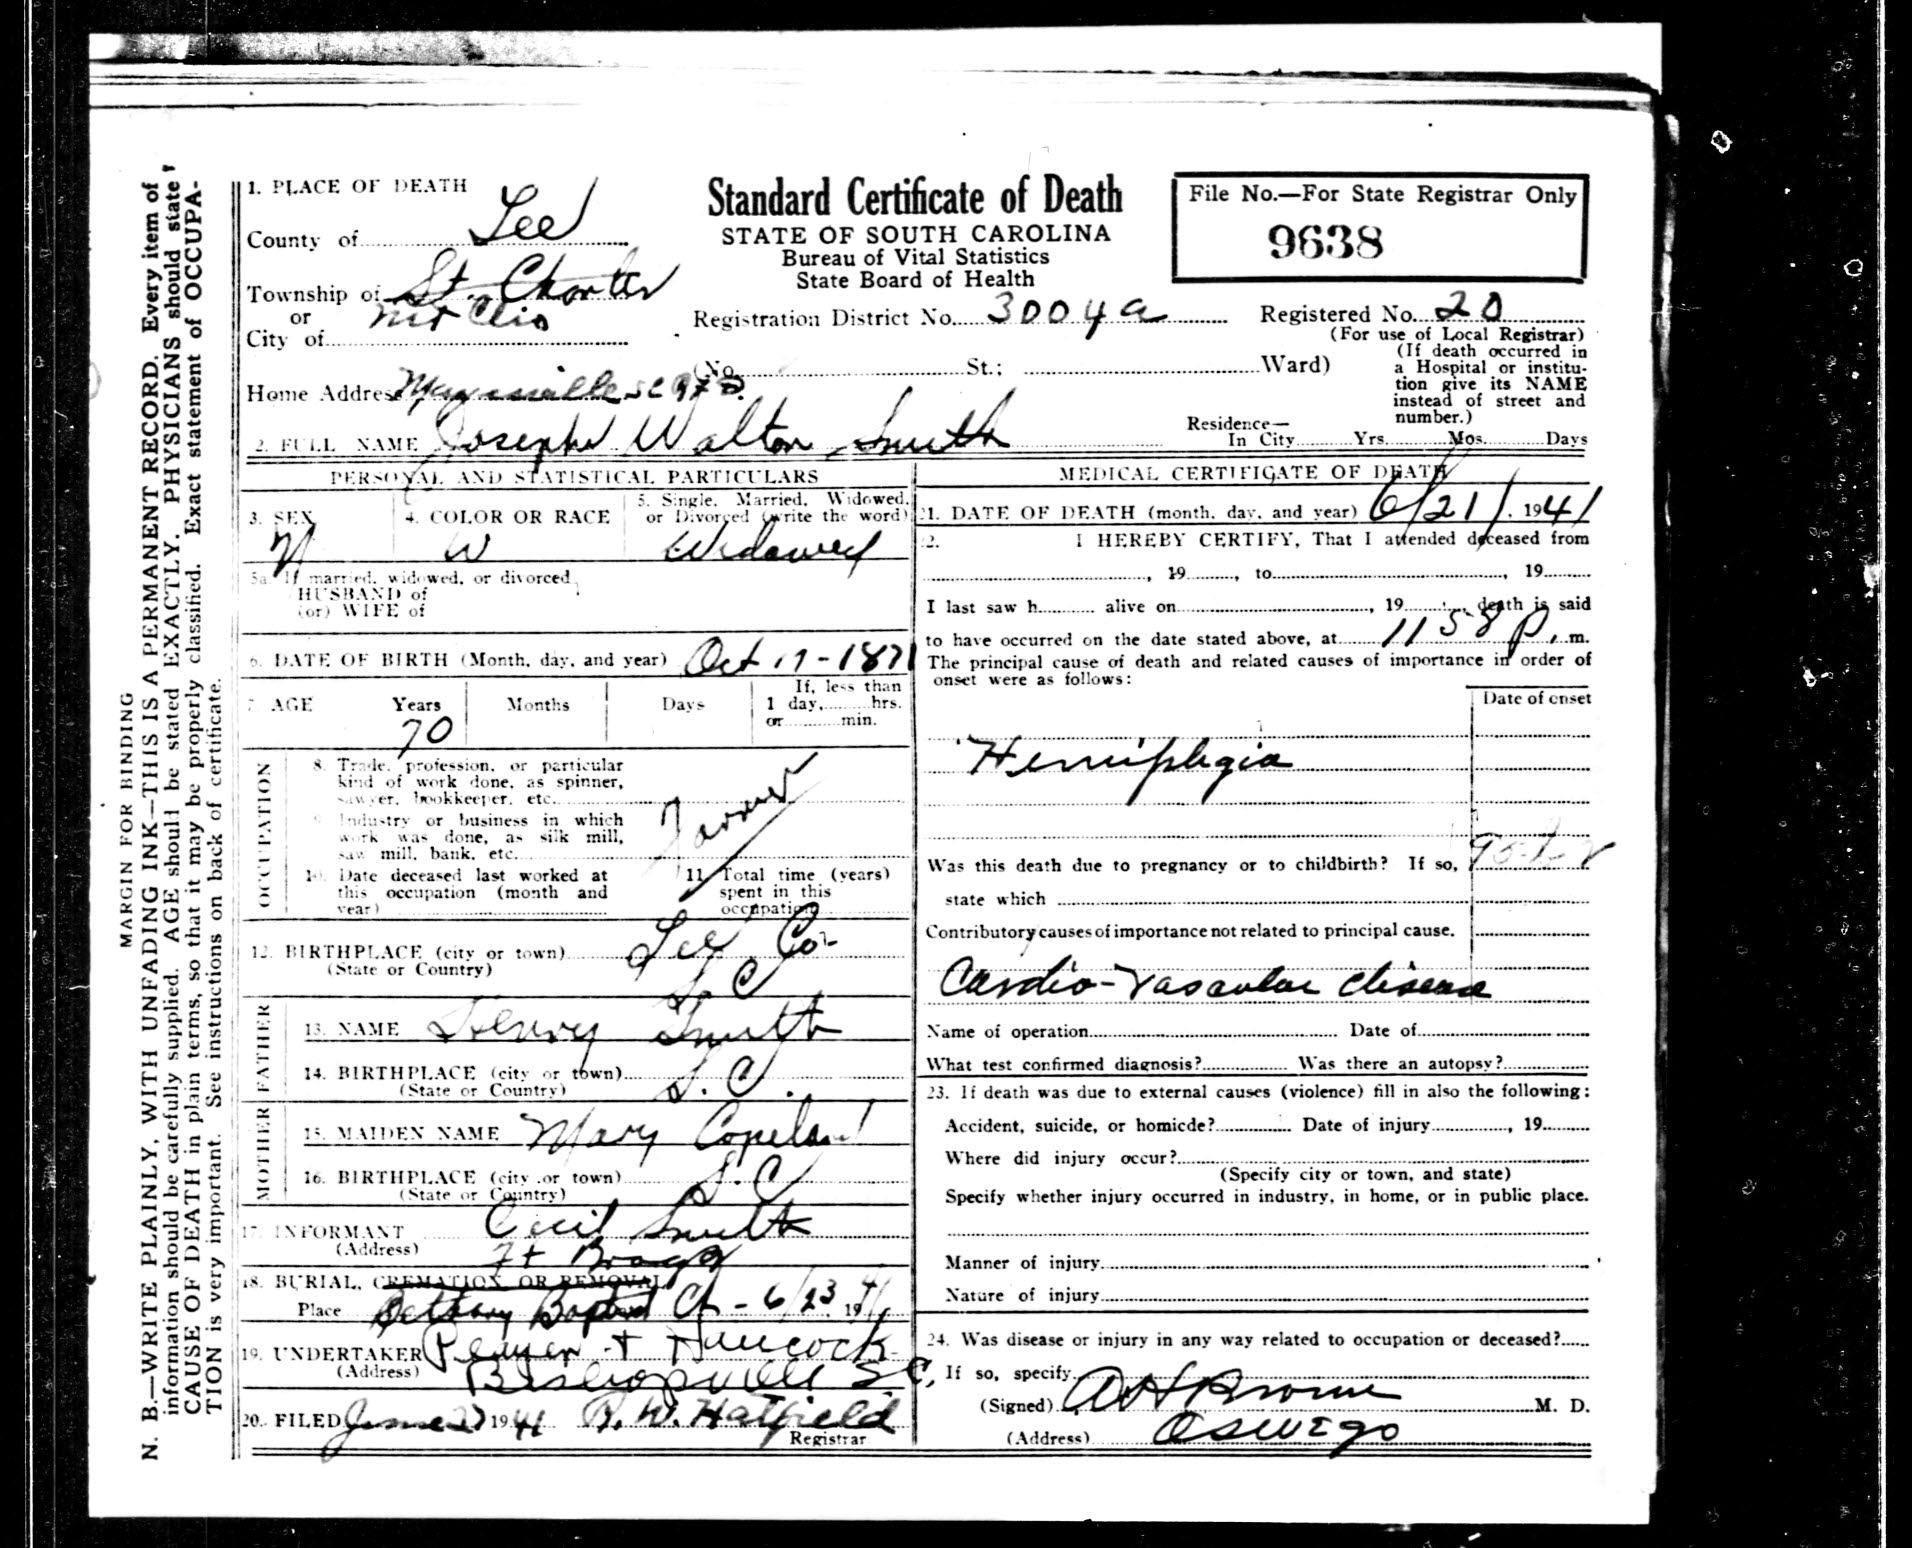 MARGIN FOR BINDING
N. B.—WRITE PLAINLY, WITH UNFADING INK—THIS IS A PERMANENT RECORD. Every item of
information should be carefully supplied. AGE should be stated EXACTLY. PHYSICIANS should state
CAUSE OF DEATH in plain terms, so that it may be properly classified. Exact statement of OCCUPA-
TION is very important. See instructions on back of certificate.
Standard Certificate of Death
STATE OF SOUTH CAROLINA
Bureau of Vital Statistics
State Board of Health
File No.—For State Registrar Only
9638
1. PLACE OF DEATH
County of Lee
Township of St. Charles
or Mt Clio
City of
Registration District No. 3004a
Registered No. 20
(For use of Local Registrar)
(No. St.; Ward)
(If death occurred in
a Hospital or institu-
tion give its NAME
instead of street and
number.)
Home Address Mayesville SC
2. FULL NAME Joseph Walton Smith
Residence—
In City Yrs. Mos. Days
PERSONAL AND STATISTICAL PARTICULARS
3. SEX M
4. COLOR OR RACE W
5. Single, Married, Widowed,
or Divorced (write the word)
Widowed
5a. If married, widowed, or divorced
HUSBAND of
(or) WIFE of
6. DATE OF BIRTH (Month, day, and year) Oct 17-1871
7. AGE Years Months Days
70
If, less than
1 day, hrs.
or min.
OCCUPATION
8. Trade, profession, or particular
kind of work done, as spinner,
sawyer, bookkeeper, etc.
Farmer
9. Industry or business in which
work was done, as silk mill,
saw mill, bank, etc.
10. Date deceased last worked at
this occupation (month and
year)
11. Total time (years)
spent in this
occupation
12. BIRTHPLACE (city or town) Lee Co-
(State or Country) S C
FATHER
13. NAME Henry Smith
14. BIRTHPLACE (city or town)
(State or Country) S. C.
MOTHER
15. MAIDEN NAME Mary Copeland
16. BIRTHPLACE (city or town) S. C
(State or Country)
17. INFORMANT Cecil Smith
(Address) Ft Bragg
18. BURIAL, CREMATION OR REMOVAL
Place Bethany Baptist Ch - 6/23 1941
19. UNDERTAKER & Hancock
(Address) Bishopville SC,
20. FILED June 27 1941 R. W. Hatfield
Registrar
MEDICAL CERTIFICATE OF DEATH
21. DATE OF DEATH (month, day, and year) 6/21/, 1941
22. I HEREBY CERTIFY, That I attended deceased from
, 19 , to , 19
I last saw h alive on , 19 , death is said
to have occurred on the date stated above, at 11 58 P, m.
The principal cause of death and related causes of importance in order of
onset were as follows:
Date of onset
Hemiplegia
Was this death due to pregnancy or to childbirth? If so,
state which
Contributory causes of importance not related to principal cause.
Cardio-Vascular disease
Name of operation Date of
What test confirmed diagnosis? Was there an autopsy?
23. If death was due to external causes (violence) fill in also the following:
Accident, suicide, or homicide? Date of injury , 19
Where did injury occur?
(Specify city or town, and state)
Specify whether injury occurred in industry, in home, or in public place.
Manner of injury
Nature of injury
24. Was disease or injury in any way related to occupation or deceased?
If so, specify
(Signed) A H Brown M. D.
(Address) Oswego